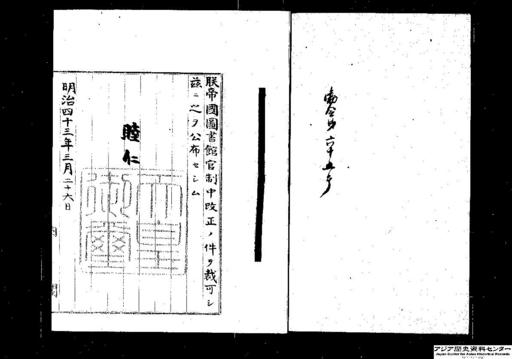 勅令第六十五号
朕帝國圖書館官制中改正ノ件ヲ裁可シ
茲ニ之ヲ公布セシム
睦仁
天皇御璽
明治四十三年三月二十六日
アジア歴史資料センター
Japan Center for Asian Historical Records